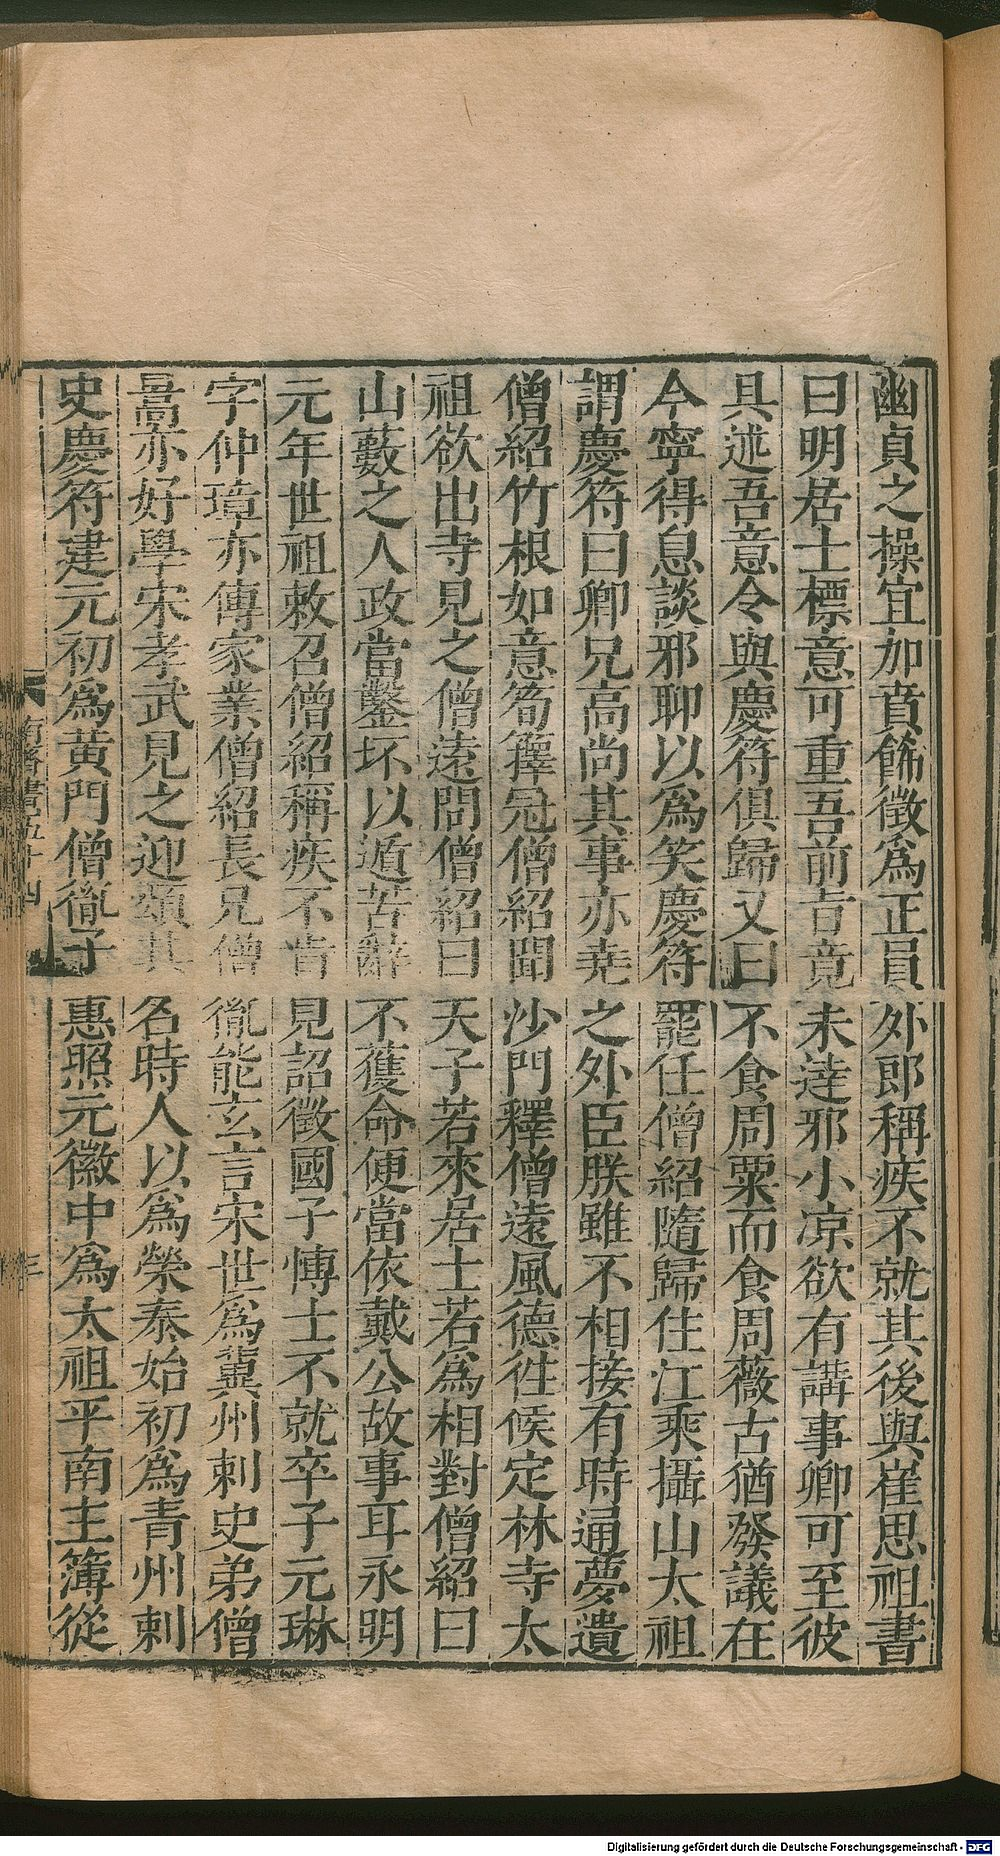 幽貞之操宜加賁飾徵爲正員外郎稱疾不就其後與崔思祖書
曰明居士標意可重吾前吉竟未達邪小凉欲有講事卿可至彼
具述吾意令與慶符俱歸又曰不食周粟而食周薇古猶發議在
今寧得息談邪聊以爲笑慶符罷任僧紹隨歸住江乘攝山太祖
謂慶符曰卿兄高尚其事亦堯之外臣朕雖不相接有時通夢遺
僧紹竹根如意筍籜冠僧紹聞沙門釋僧遠風德徃候定林寺太
祖欲出寺見之僧遠問僧紹曰天子若來居士若爲相對僧紹曰
山藪之人政當鑿坏以遁苦辭不獲命便當依戴公故事耳永明
元年世祖敕召僧紹稱疾不肯見詔徵國子博士不就卒子元琳
字仲璋亦傳家業僧紹長兄僧胤能玄言宋世爲冀州刺史弟僧
暠亦好學宋孝武見之迎頌其名時人以爲榮泰始初爲青州刺
史慶符建元初爲黃門僧胤子惠照元徽中爲太祖平南主簿從
南齊書五十四